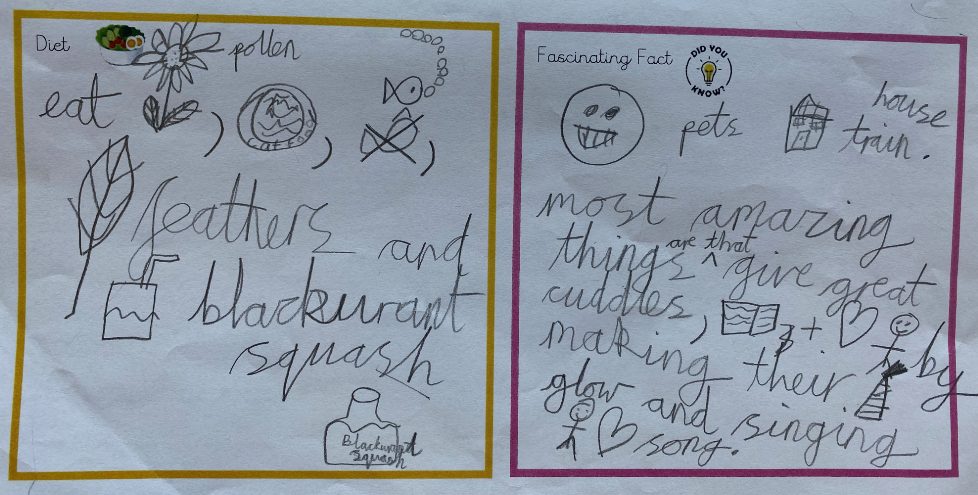 Diet
pollen
eat , cat food , ,
feathers and
blackurant
squash
Blackurant
squash
Fascinating Fact
DID YOU
KNOW?
pets
house
train.
most amazing
things are that
^ give great
cuddles,
making their by
glow and singing
song.